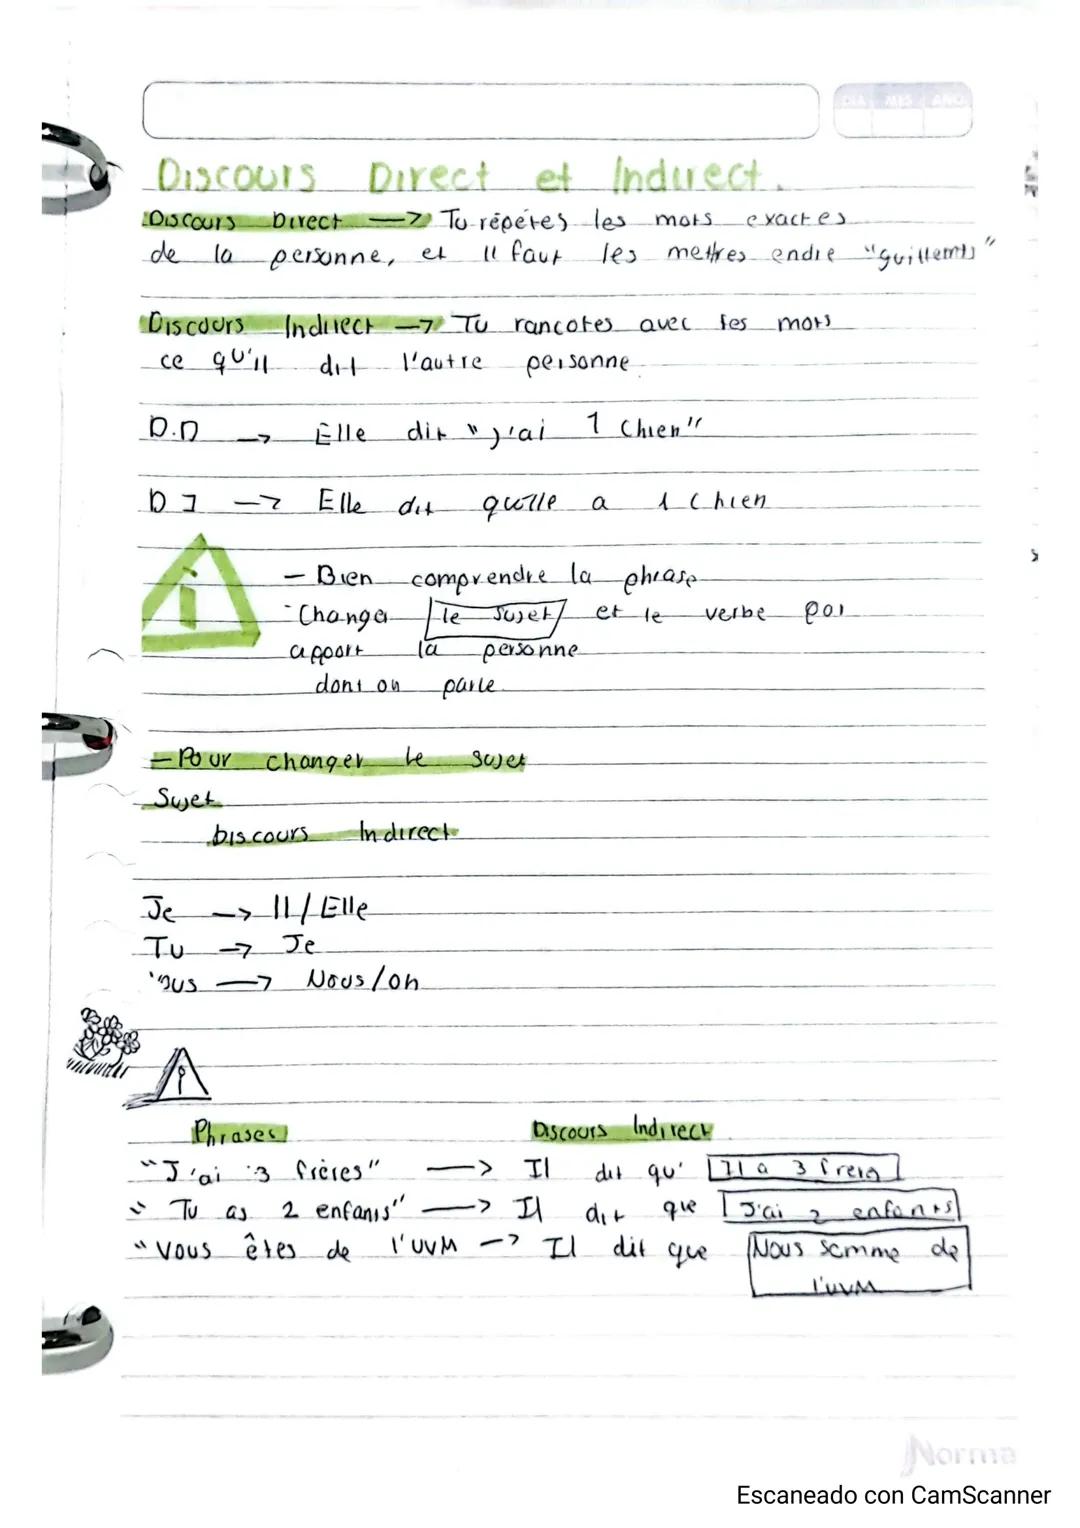 DIA MES AÑO
Discours Direct et Indirect.
Discours Direct —> Tu répétes les mots exactes
de la personne, et Il faut les mettres endre "guillemts"
Discours Indirect —> Tu rancotes avec tes mots
ce qu'il dit l'autre personne.
D.D —> Elle dit "j'ai 1 Chien"
D I —> Elle dit qu'elle a 1 Chien
i
- Bien comprendre la phrase
- Changer le sujet et le verbe par
apport la personne
dont on parle.
- Pour changer le sujet
Sujet
Discours Indirect
Je —> Il/Elle
Tu —> Je
Vous —> Nous/on
Phrases Discours Indirect
"J'ai 3 frères" —> Il dit qu' Il a 3 frera
"Tu as 2 enfants" —> Il dit que J'ai 2 enfants
"Vous êtes de l'UVM —> Il dit que Nous somme de
l'UVM
Norma
Escaneado con CamScanner